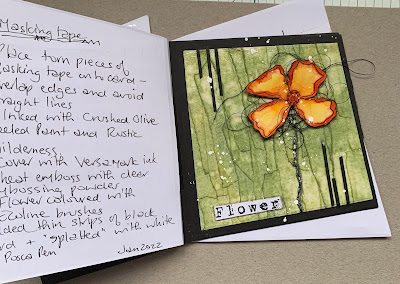 Masking tape
Place torn pieces of
masking tape onto card –
overlap edges and avoid
straight lines
Inked with Crushed Olive
Peeled Paint and Rustic
Wilderness
Cover with Versamark ink
heat emboss with clear
embossing powder
Flower coloured with
Ecoline brushes
Added thin strips of black
card + "splatted" with white
Posca Pen
Jan 2022
Flower